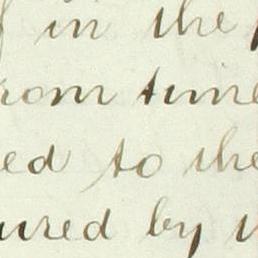 in the
rom time
ed to the
ured by